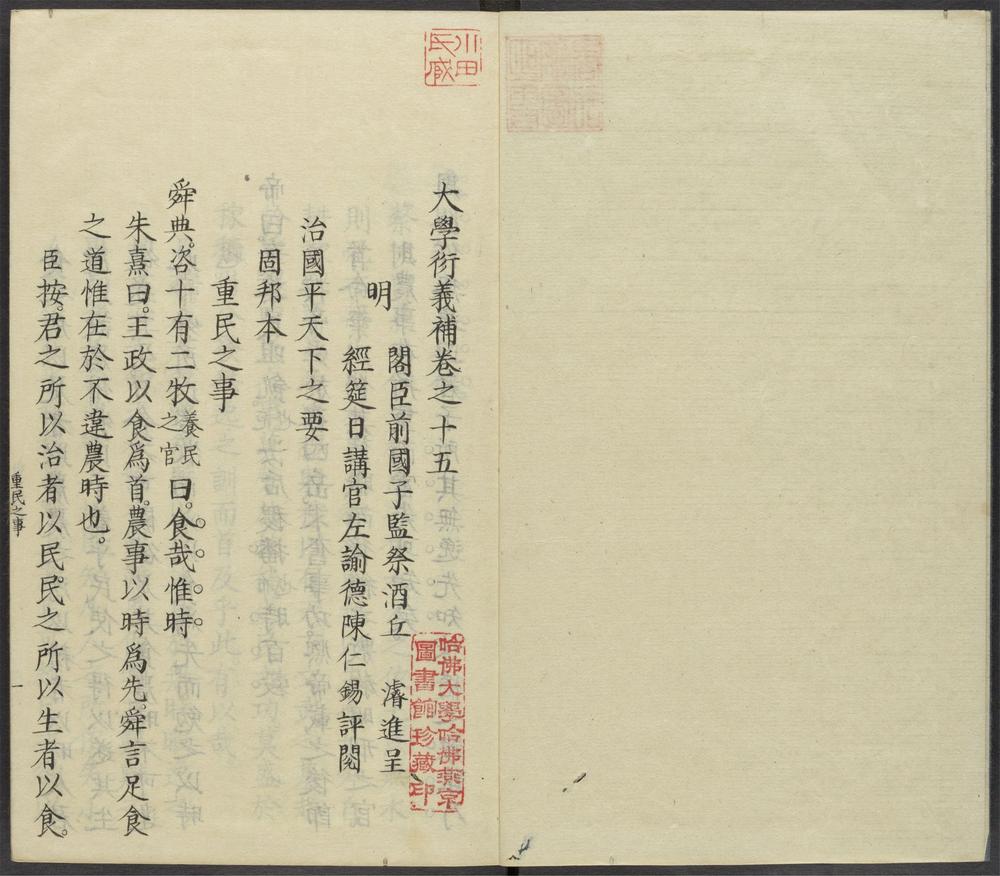 大學衍義補卷之十五
明
閣臣前國子監祭酒丘　濬進呈
經筵日講官左諭德陳仁錫評閱
治國平天下之要
固邦本
重民之事
舜典。咨十有二牧養民之官曰。食哉惟時。
朱熹曰。王政以食爲首。農事以時爲先。舜言足食
之道惟在於不違農時也。
臣按。君之所以治者以民。民之所以生者以食。
重民之事
一
哈佛大學哈佛燕京
圖書館珍藏印